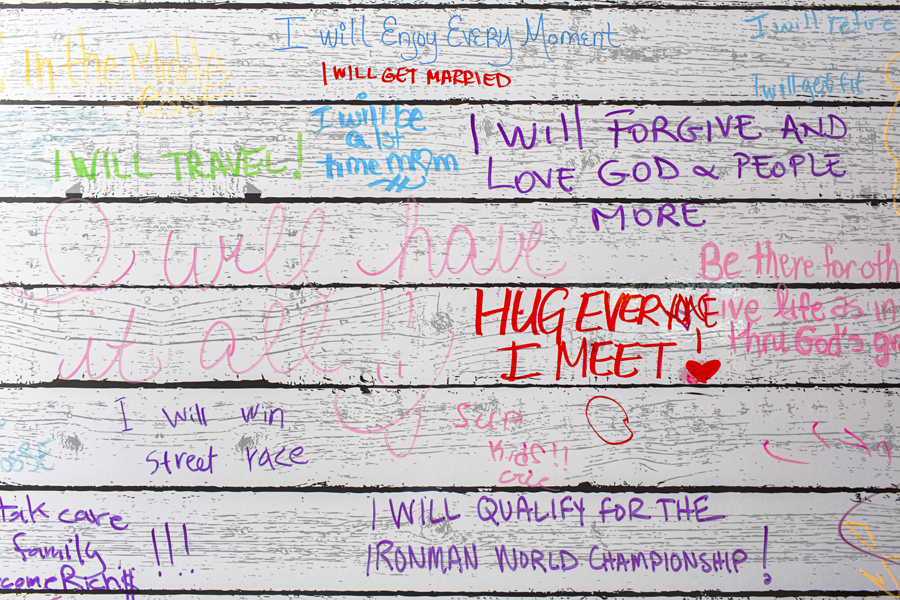 I will Enjoy Every Moment
I will retire
In the Middle
East
I WILL GET MARRIED
I will get fit
I will be
a 1st
time mom
I WILL TRAVEL!
I WILL FORGIVE AND
LOVE GOD & PEOPLE
MORE
I will have
it all!!
Be there for oth
HUG EVERYONE
I MEET!
ive life as in
thru God's g
I will win
street race
Sup
Kids!!
eric
tak care
family !!!
come Rich$
I WILL QUALIFY FOR THE
IRONMAN WORLD CHAMPIONSHIP!